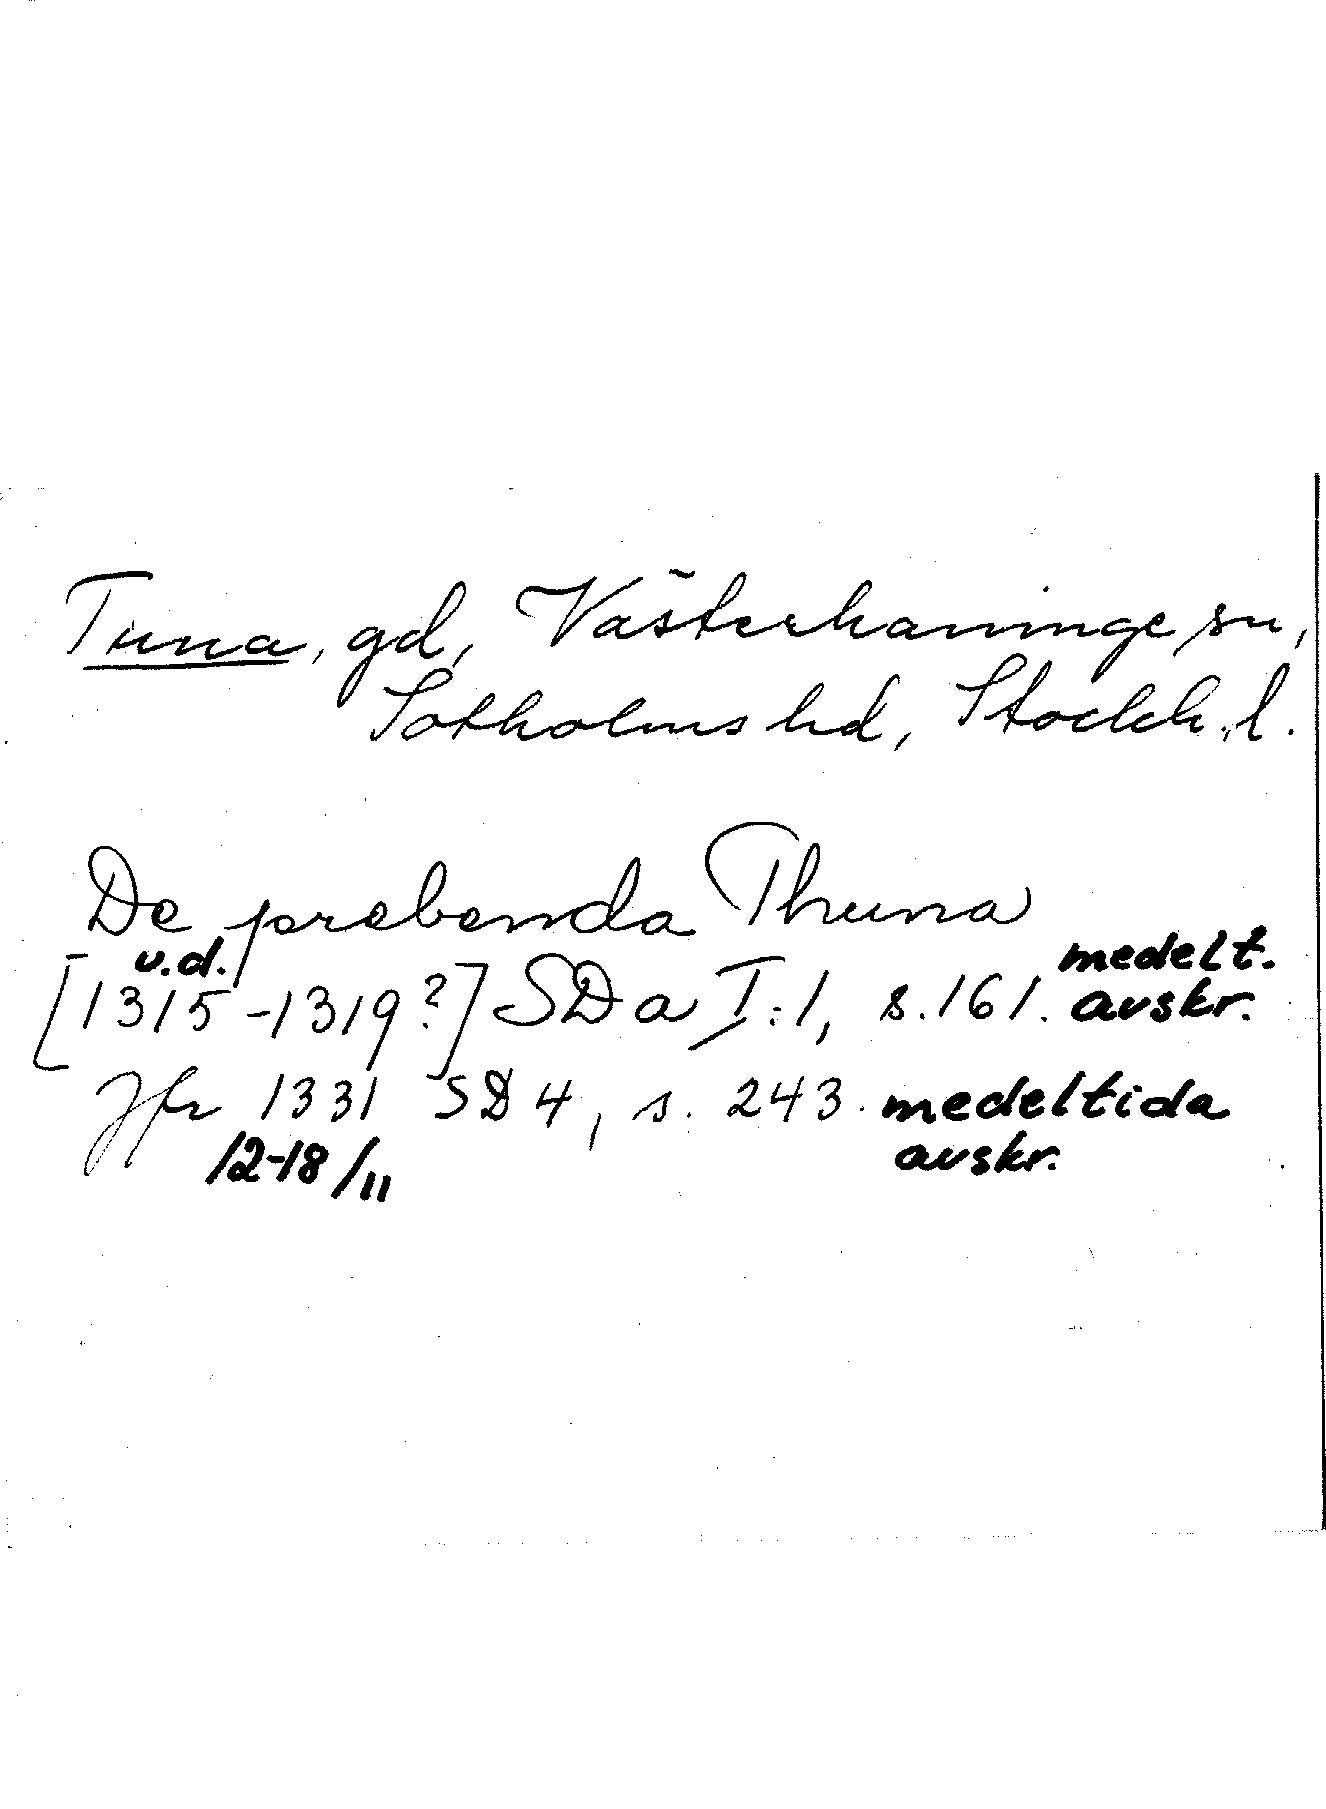 Tuna, gd, Västerhaninge sn,
Sotholms hd, Stockh. l.
De prebenda Thuna
u.d. medelt.
[1315-1319?] SD a I:1, s. 161. avskr.
Jfr 1331 SD 4, s. 243. medeltida
12-18/11 avskr.